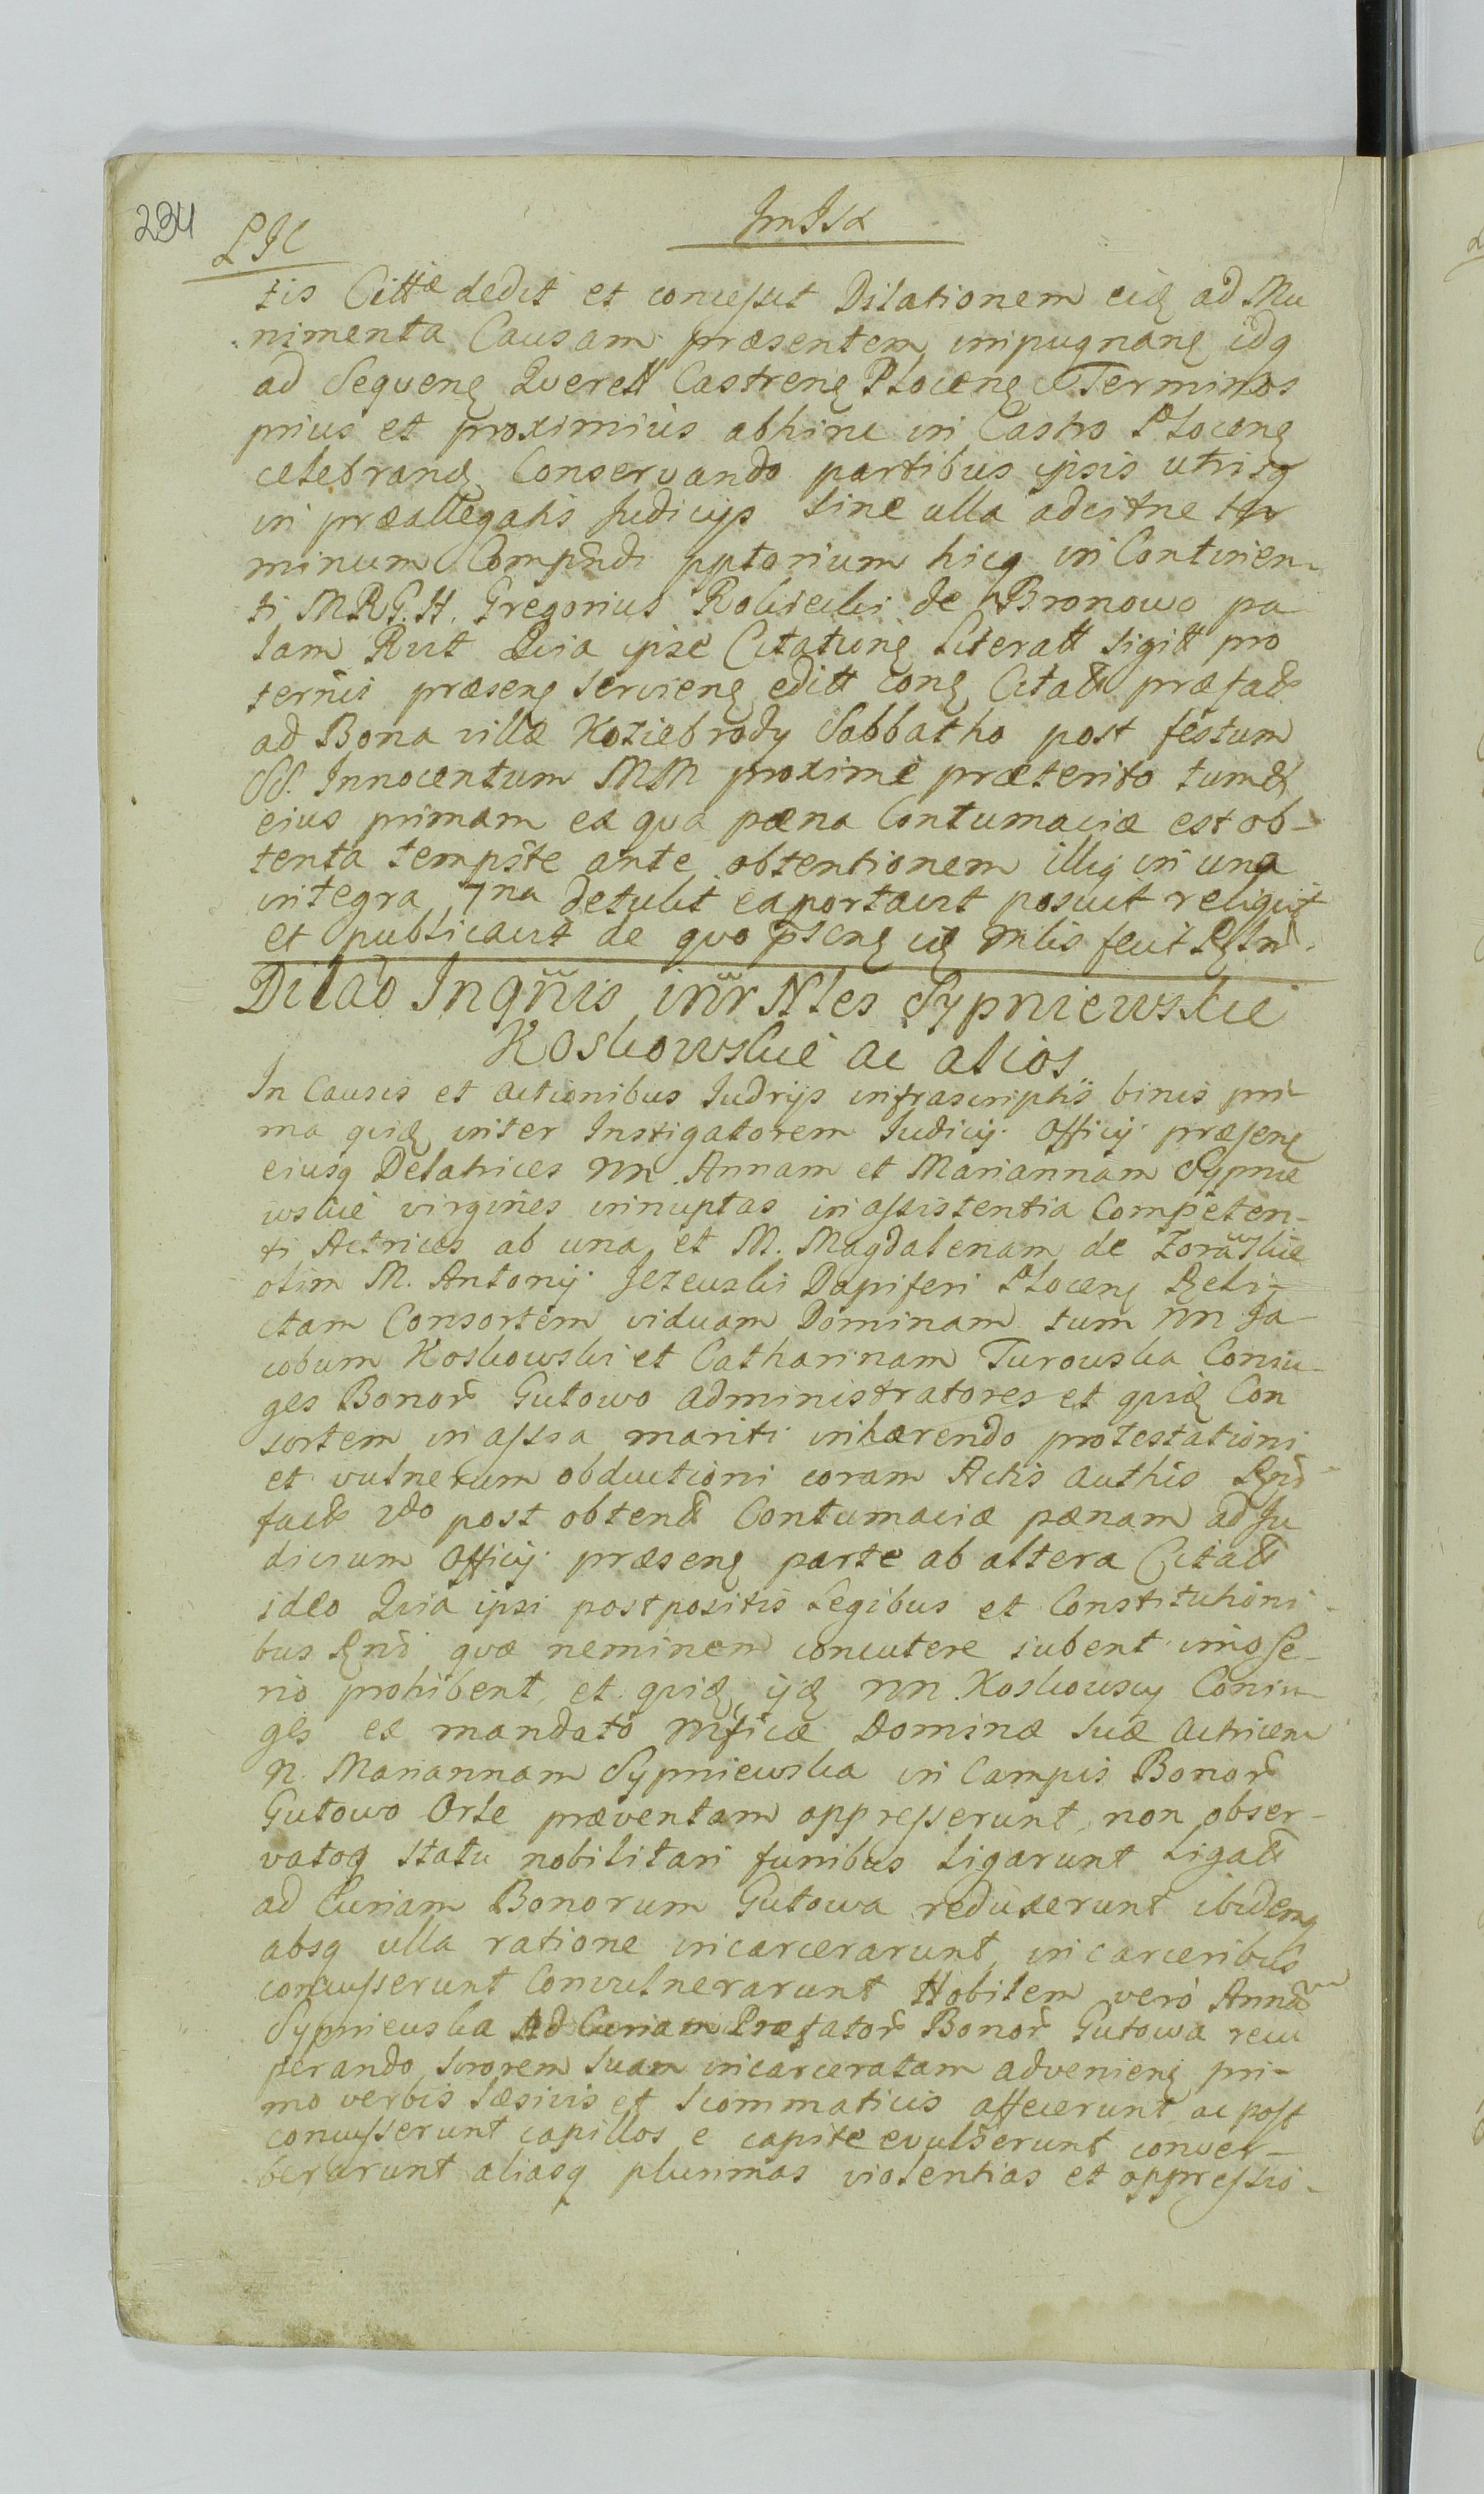 234
LJC
tis Cittæ dedit et concessit Dilationem eid ad Mu
nimenta Causam præsentem impugnanę idq
ad Sequenę Querell Castrenę Plocenę Terminos
prius et proximius abhinc in Castro Plocenę
celebrand Conservando partibus ipsis utrisq
in præallegatis Judicijs sine ulla adcitne ter
minum Comprndi pptorium hicq in Continen-
ti MRG.H. Gregorius Robiecki de Bronowo pa
lam Rvit Quia ipse Citationę Literatt sigitt pro
ternis præsenę servienę editt conę Citatt præfatt
ad Bona villæ Koziebrody Sabbatho post festum
SS. Innocentum MM proximè præterito tumq
eius primam ex qua pæna Contumaciæ est ob-
tenta tempste ante obtentionem illiq in una
integra 7na detulit exportavit posuit reliquit
et publicavit de quo psenę eię mlis fecit Rlnē.
Dilao Ingnis intr Nles Sypniewskie
Koskowskie ac alios
In Causis et actionibus Judrijs infrascriptis binis pri
ma quid inter Instigatorem Judicij Officij præsenę
eiusq Delatrices nn Annam et Mariannam Sypnie
wskie virgines innuptas in assistentia Competen-
ti Actrices ab una et M. Magdalenam de Zorawskie
olim M. Antonij Jezewski Dapiferi Plocenę Reli-
ctam Consortem viduam Dominam tum nn Ja
cobum Koskowski et Catharinam Turowska Coniu-
ges Bonor Gutowo administratores et quid Con
sortem in asstia mariti inhærendo protestationi
et vulnerum obductioni coram Actis authis Rni
factt 2do post obtentt Contumaciæ pænam ad Ju
dicium Officij præsenę parte ab altera Citatt
ideo Quia ipsi postpositis Legibus et Constitutioni-
bus Rni quæ neminem concutere iubent imo se-
rio prohibent, et quid ijd nn Koskowscy Coniu
ges ex mandato Mficæ Dominæ suæ actricem
N. Mariannam Sypniewska in Campis Bonor
Gutowo Orle præventam oppresserunt, non obser-
vatoq statu nobilitari funibus ligarunt ligatt
ad Curiam Bonorum Gutowa reduxerunt ibidemq
absq ulla ratione incarcerarunt, in carceribus
concusserunt Convulnerarunt Nobilem verò Annam
Sypniewska Ad Curiam Præfator Bonor Gutowa recu
perando sororem suam incarceratam advenienę pri-
mo verbis læsivis et scommaticis affecerunt ac post
concusserunt capillos e capite evulserunt conver-
berarunt aliasq plurimas violentias et oppressio-